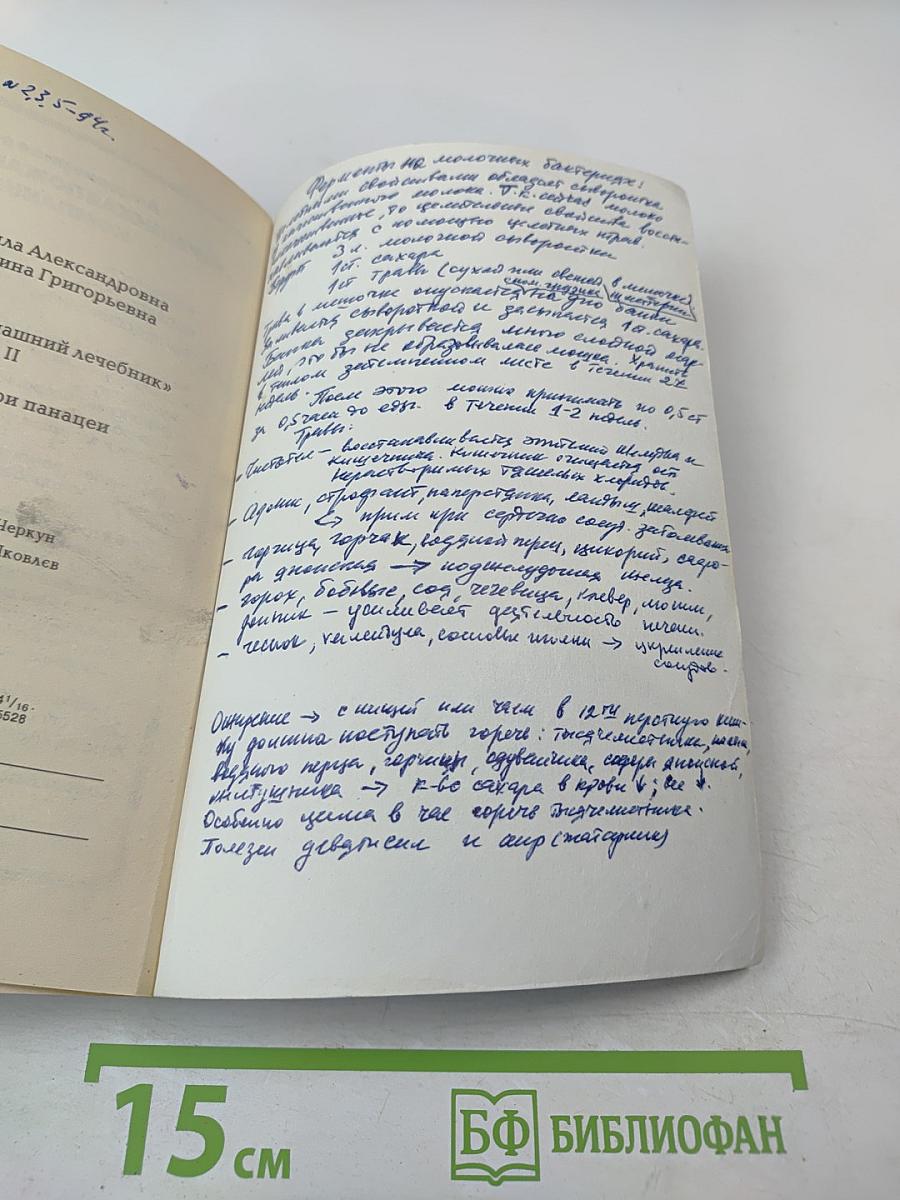 № 2,3,5-94г.
ла Александровна
ина Григорьевна
ашний лечебник»
II
ри панацеи
Черкун
Яковлев
4 1/16.
5528
Ферменты на молочных бактериях:
свойствами обладает сыворотка
молока. Т.к. сейчас молоко
то целительные свойства восста-
навливаются с помощью целебных трав.
Берут 3 л. молочной сыворотки
1 ст. сахара
1 ст травы (сухой или свежей) в мешочке
Трава в мешочке опускается на дно банки
заливается сывороткой и засыпается 1 ст. сахара.
Банка закрывается много слойной мар-
лей, что бы не образовывалась мошка. Хранить
в теплом затемненном месте в течении 2х
недель. После этого можно принимать по 0,5 ст
за 0,5 часа до еды. в течении 1-2 недель.
Травы:
Чистотел – восстанавливает эпителий желудка и
кишечника. Кишечник очищается от
нерастворимых тяжелых хлоридов.
– Адонис, строфант, наперстянка, ландыш, желтуш
↳ прим при сердечно сосуд. заболевания
– горчица, горчак, водяной перец, цикорий, софо-
ры японская → поджелудочная железа.
– горох, бобовые, соя, чечевица, клевер, люпин,
донник – усиливает деятельность печени.
– чеснок, календула, сосновые иголки → укрепление
сосудов.
Ожирение → с пищей или чаем в 12ти перстную киш-
ку должна поступать горечь: тысячелистника,
водяного перца, горчицы, одуванчика, софоры японской,
желтушника → к-во сахара в крови ↓; вес ↓.
Особенно ценна в чае горечь тысячелистника.
Полезен девясил и аир (татарник)
15 см
БФ БИБЛИОФАН